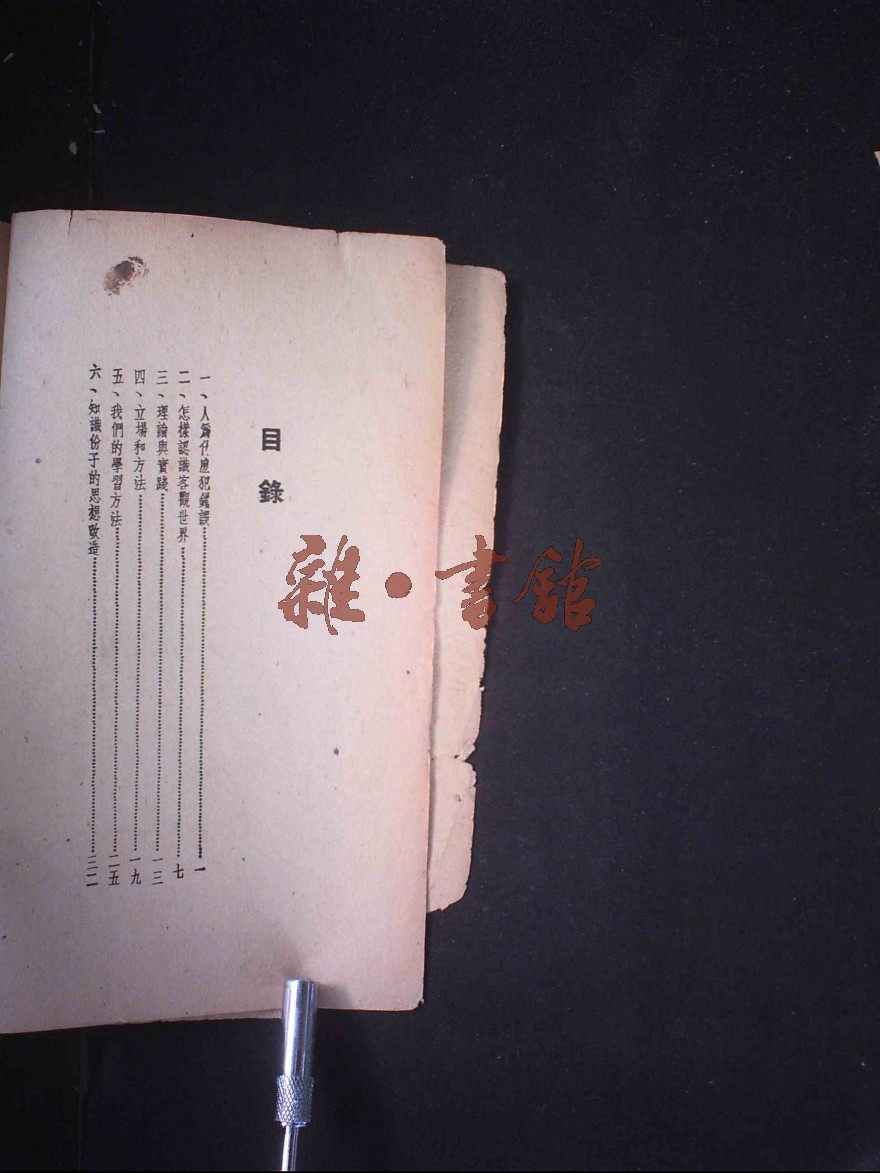 目錄
一、人爲什麽犯錯誤…………一
二、怎樣認識客觀世界…………七
三、理論與實踐…………一三
四、立場和方法…………一九
五、我們的學習方法…………二五
六、知識份子的思想改造…………三二
雜·書館